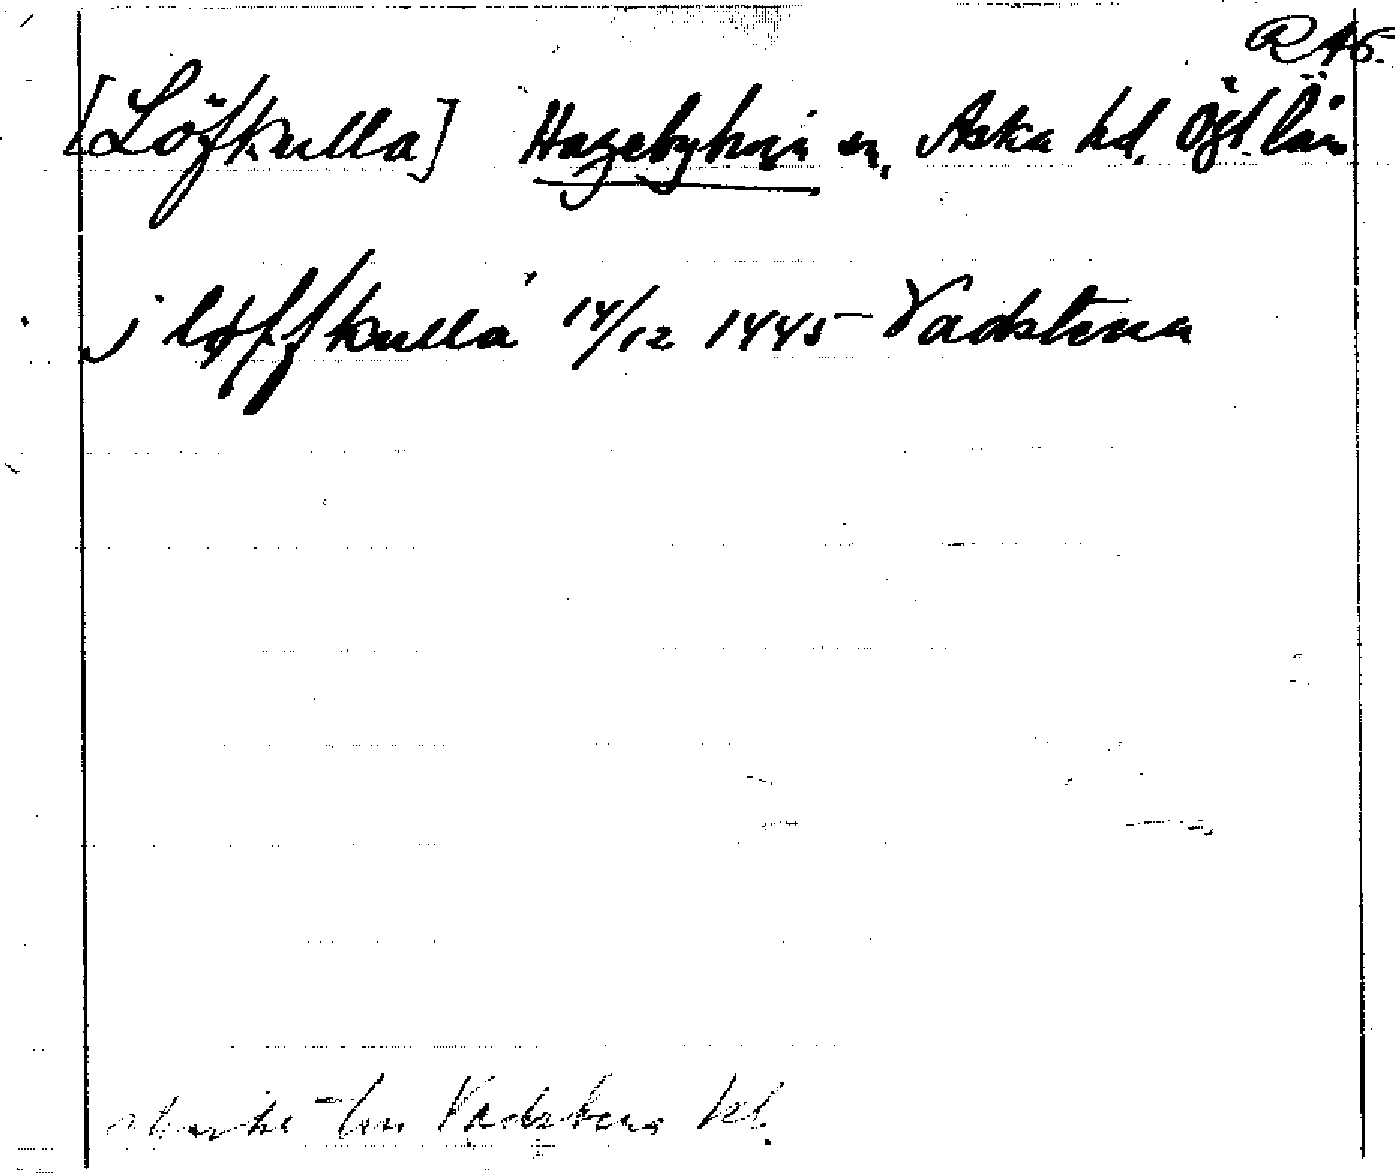 RAp.
[Löfkulla] Hagebyhöga sn, Aska hd. Ögl. län
j løffkulla 14/12 1445 Vadstena
Vadstena kl.